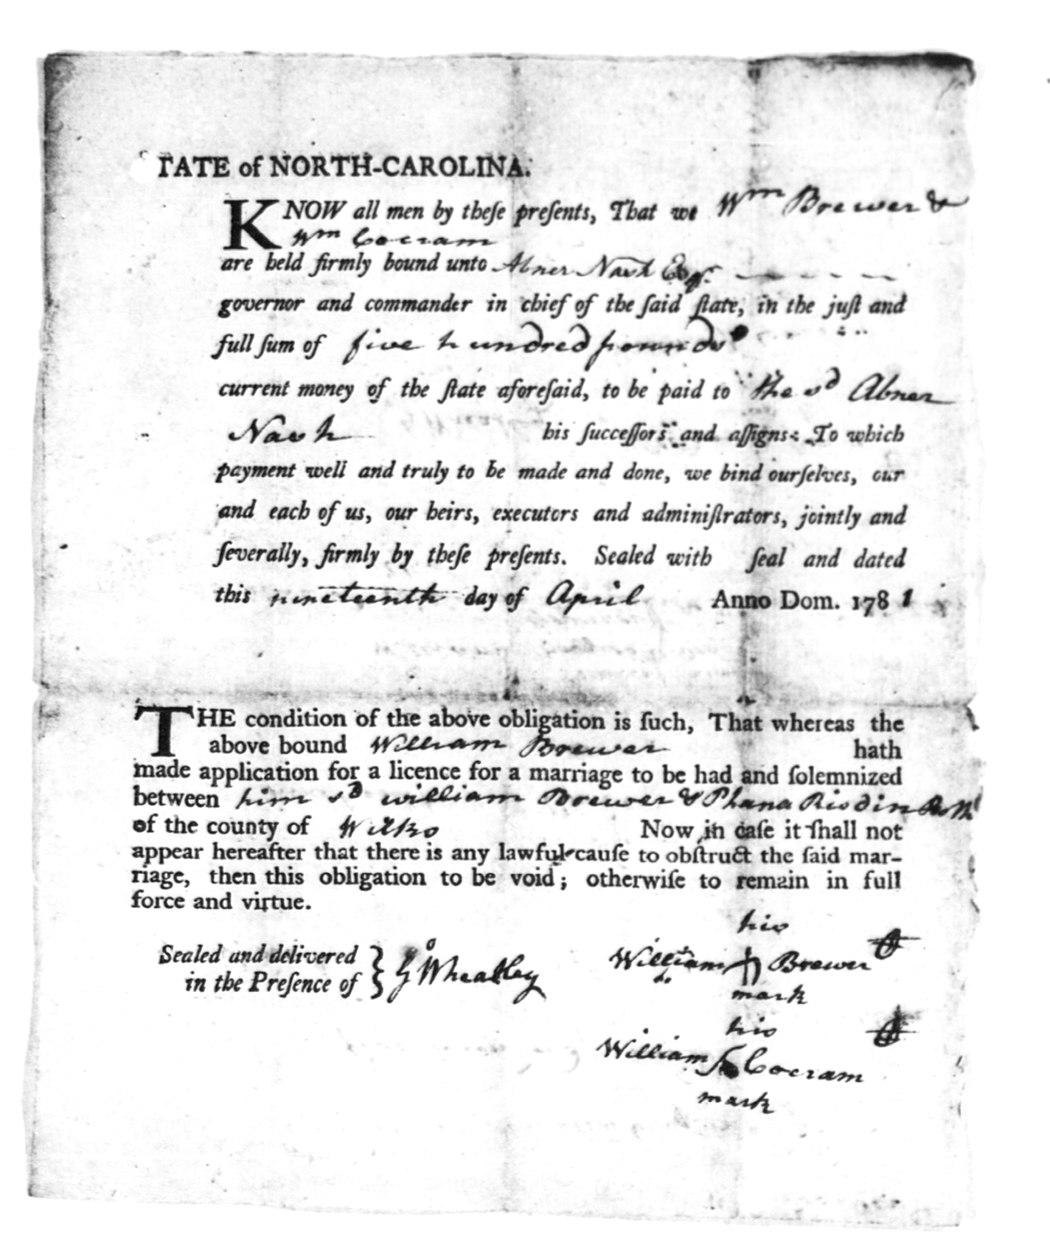 TATE of NORTH-CAROLINA.
KNOW all men by theſe preſents, That we Wm Brewer &
Wm Cocram
are held firmly bound unto Abner Nash Esqr.
governor and commander in chief of the ſaid ſtate, in the juſt and
full ſum of five hundred pounds
current money of the ſtate aforeſaid, to be paid to the sd Abner
Nash his ſucceſſors and aſſigns: To which
payment well and truly to be made and done, we bind ourſelves, our
and each of us, our heirs, executors and adminiſtrators, jointly and
ſeverally, firmly by theſe preſents. Sealed with ſeal and dated
this nineteenth day of April Anno Dom. 1781
THE condition of the above obligation is ſuch, That whereas the
above bound William Brewer hath
made application for a licence for a marriage to be had and ſolemnized
between him sd william Brewer & Phana Risdin
of the county of Wilks Now in caſe it ſhall not
appear hereafter that there is any lawful cauſe to obſtruct the ſaid mar-
riage, then this obligation to be void; otherwiſe to remain in full
force and virtue.
his
Sealed and delivered
in the Preſence of } Wheatley
William Brewer
mark
his
William Cocram
mark